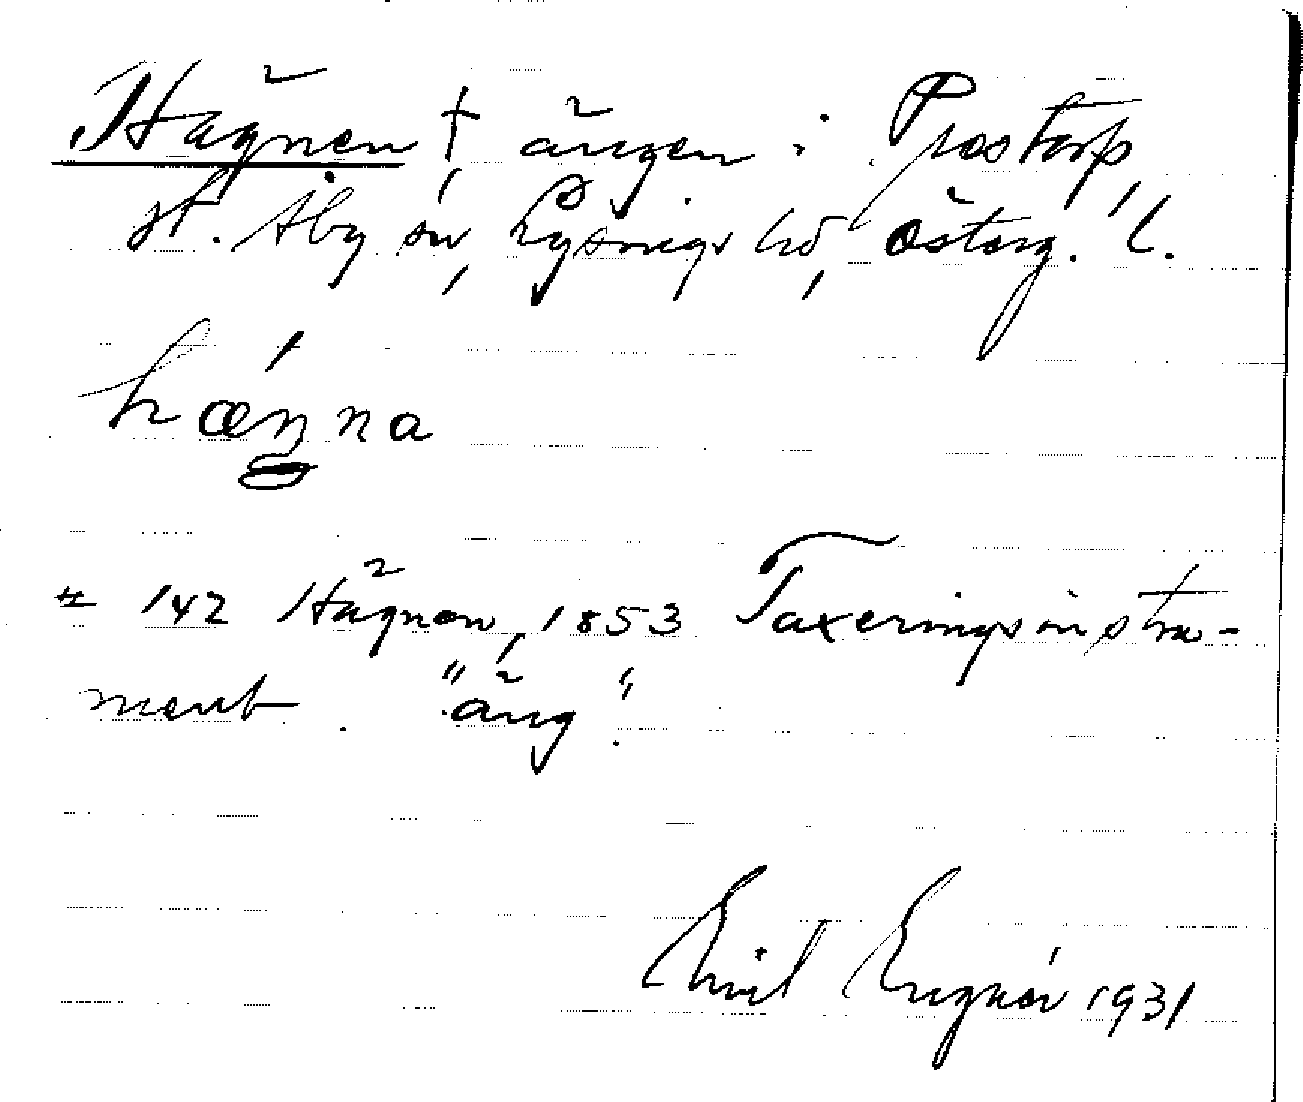 Hägnen †, ängen i Prostorp,
St. Åby sn, Lysings hd, Österg. l.
hǽŋna
# 142 Hägnen, 1853 Taxeringsinstru-
ment. "äng".
Emil Lignér 1931